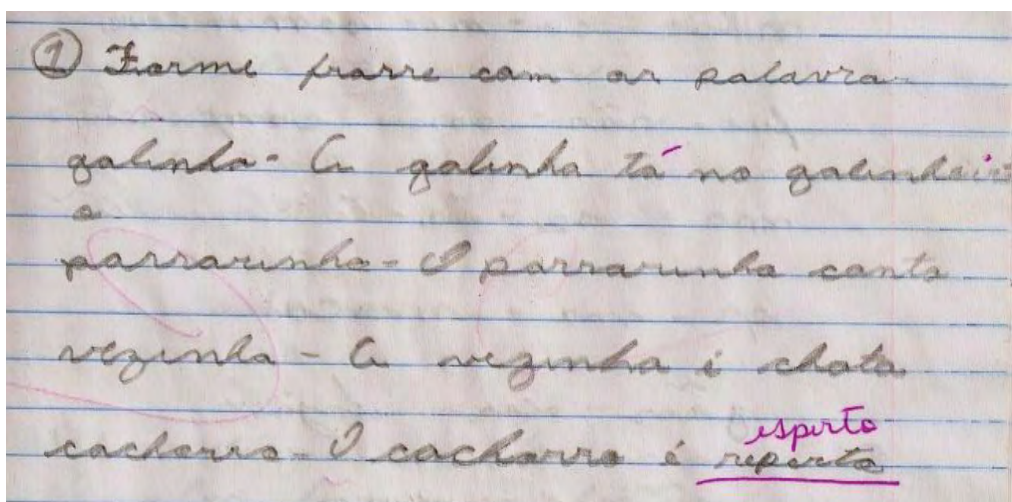 ① Forme frasse com as palavra
galinha - A galinha tá no galinheir
o
passarinho - O passarinho canta
vezinha - A vezinha é chata
esperto
cachorro - O cachorro é reperto